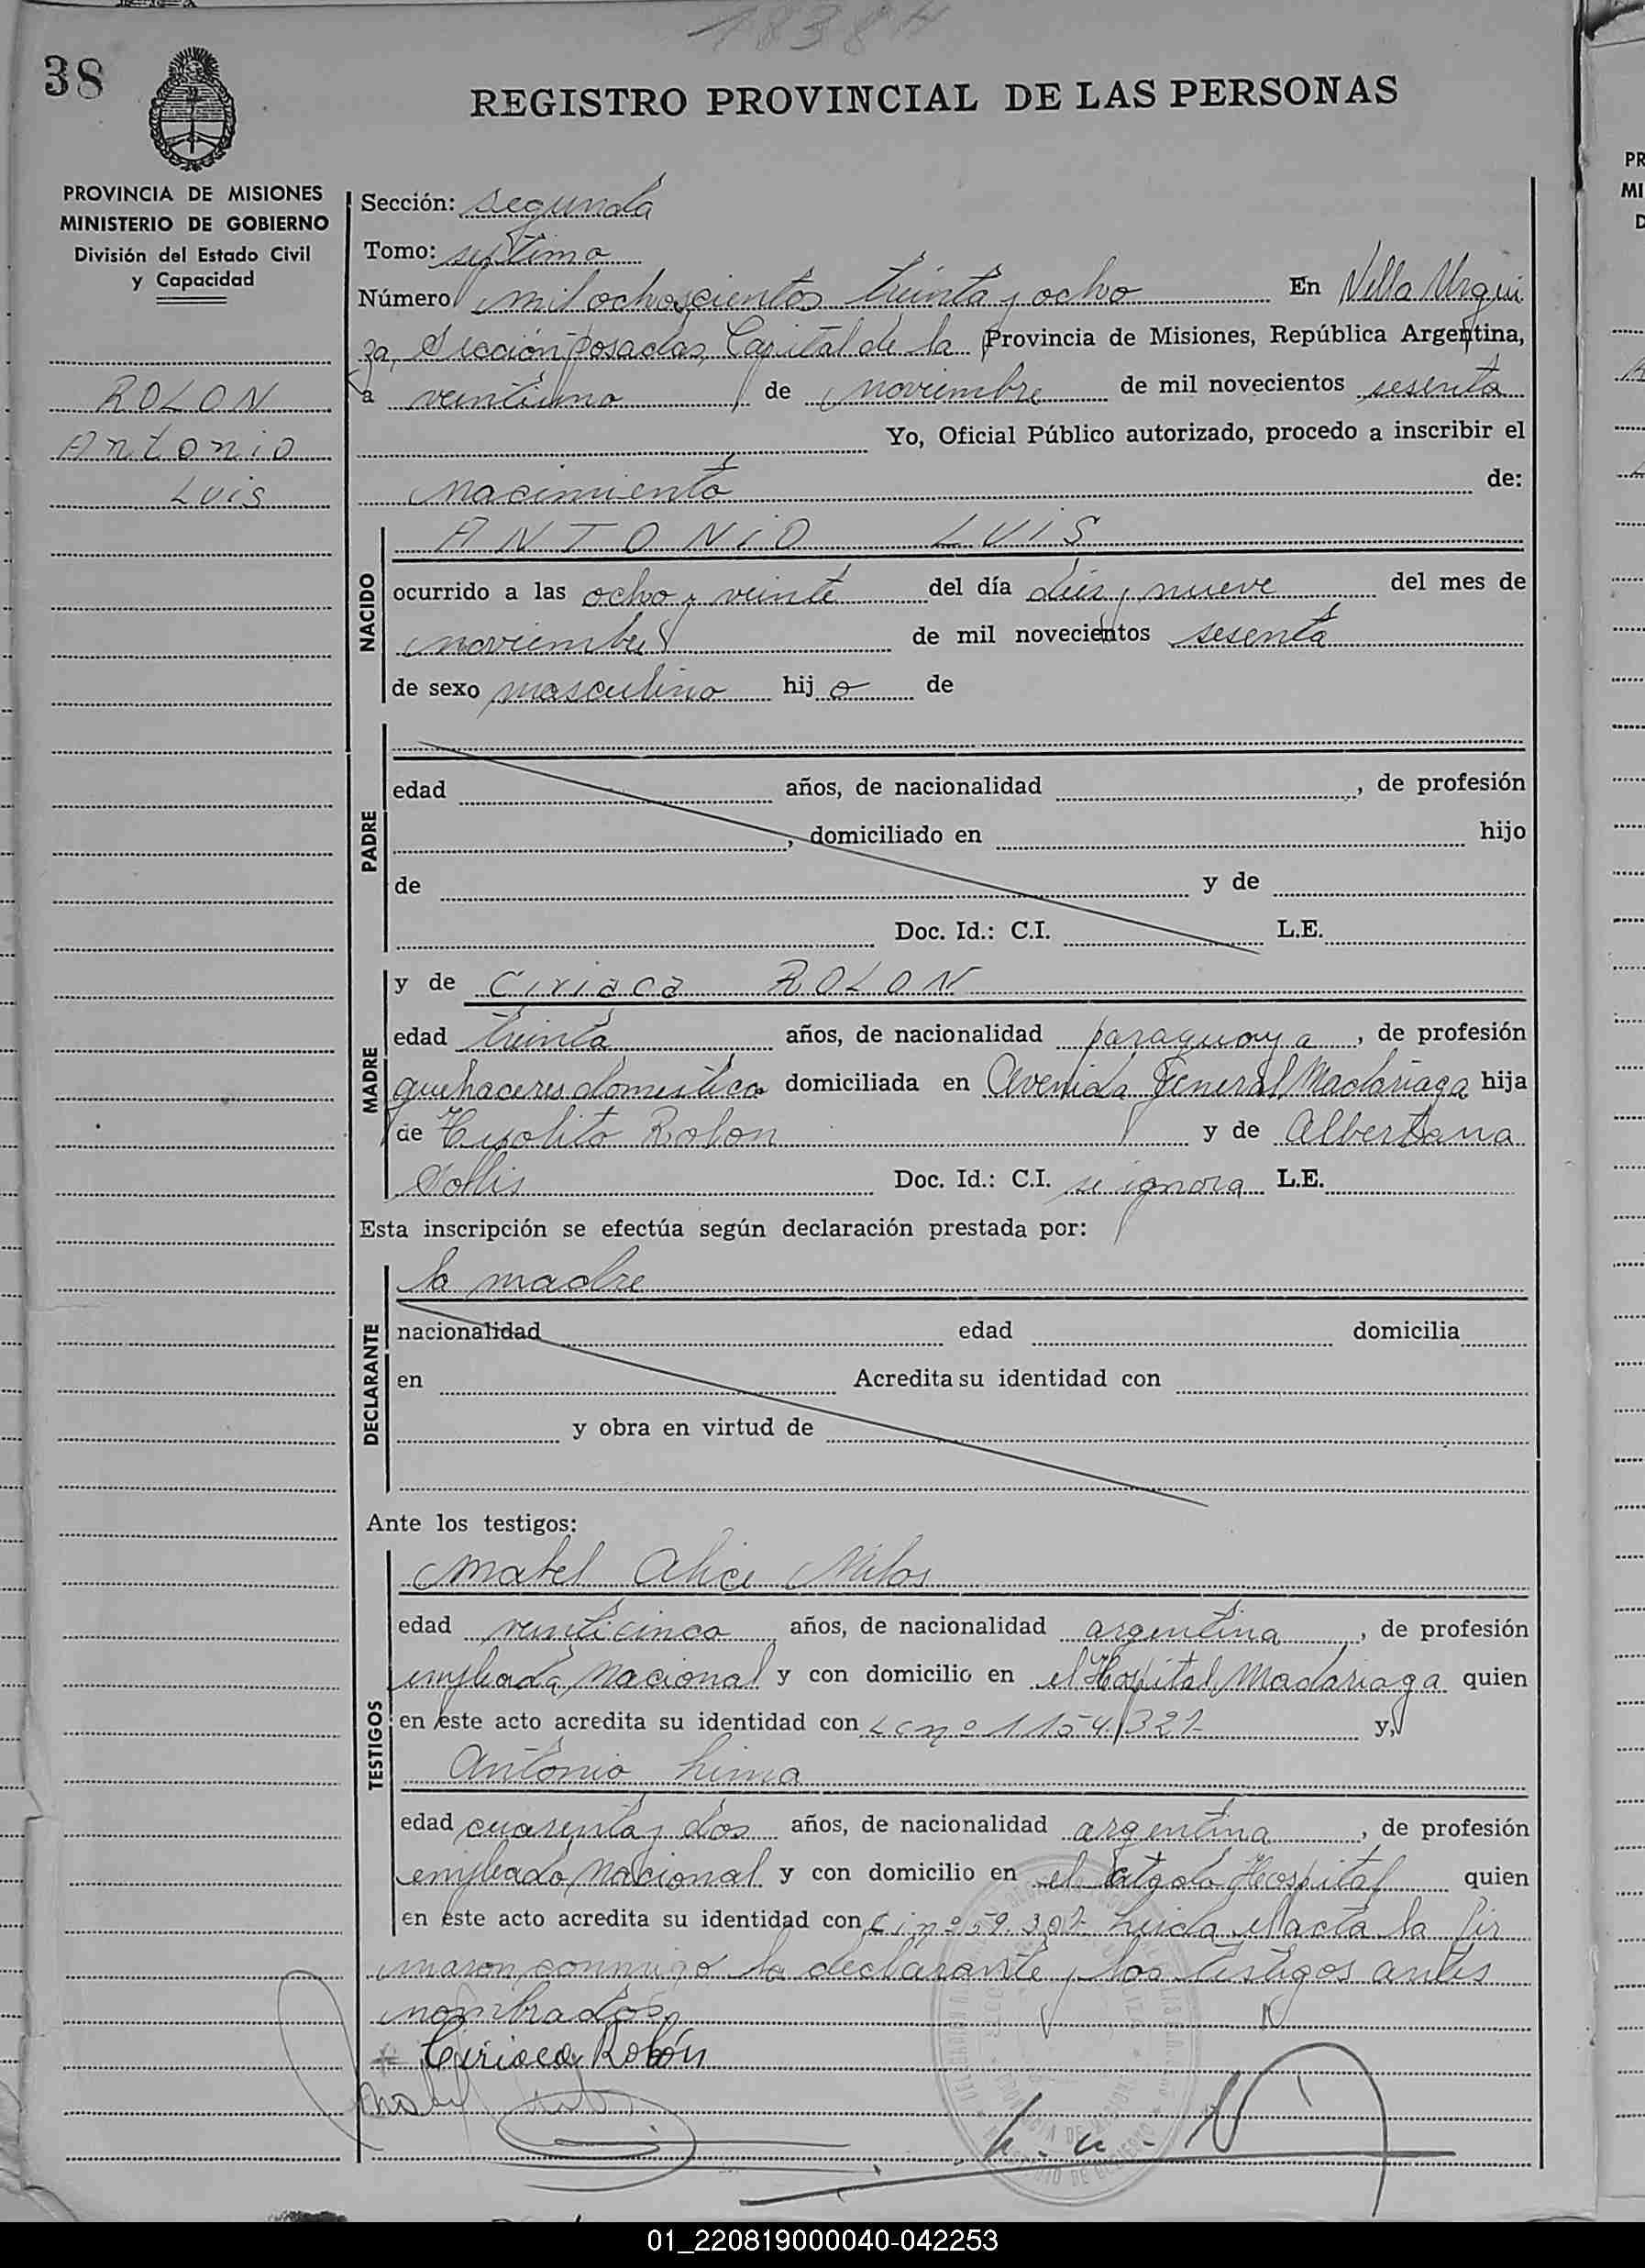 1838H
38
REGISTRO PROVINCIAL DE LAS PERSONAS
PROVINCIA DE MISIONES
MINISTERIO DE GOBIERNO
División del Estado Civil
y Capacidad
ROLON
Antonio
Luis
Sección: segunda
Tomo: septimo
Número mil ochoscientos treinta y ocho En Villa Urqui
za, Sección Posadas, Capital de la Provincia de Misiones, República Argentina,
a veintiuno de noviembre de mil novecientos sesenta
Yo, Oficial Público autorizado, procedo a inscribir el
nacimiento de:
NACIDO
ANTONIO LUIS
ocurrido a las ocho y veinte del día diez y nueve del mes de
noviembre de mil novecientos sesenta
de sexo masculino hijo de
PADRE
edad años, de nacionalidad , de profesión
, domiciliado en hijo
de y de
Doc. Id.: C.I. L.E.
MADRE
y de Ciriaca ROLON
edad treinta años, de nacionalidad paraguaya, de profesión
quehaceres domestico domiciliada en Avenida General Madariaga hija
de Hipolito Rolon y de Albertana
Sollis Doc. Id.: C.I. se ignora L.E.
Esta inscripción se efectúa según declaración prestada por:
DECLARANTE
la madre
nacionalidad edad domicilia
en Acredita su identidad con
y obra en virtud de
Ante los testigos:
TESTIGOS
Mabel Alice Milos
edad veinticinco años, de nacionalidad argentina, de profesión
empleada Nacional y con domicilio en el Hospital Madariaga quien
en este acto acredita su identidad con L C nº 1154.321- y,
Antonio Lima
edad cuarenta y dos años, de nacionalidad argentina, de profesión
empleado Nacional y con domicilio en el citado Hospital quien
en este acto acredita su identidad con C i nº 59.302- Leida el acta la fir
maron conmigo la declarante y los testigos antes
nombrados.
Ciriaca Rolón
01_220819000040-042253